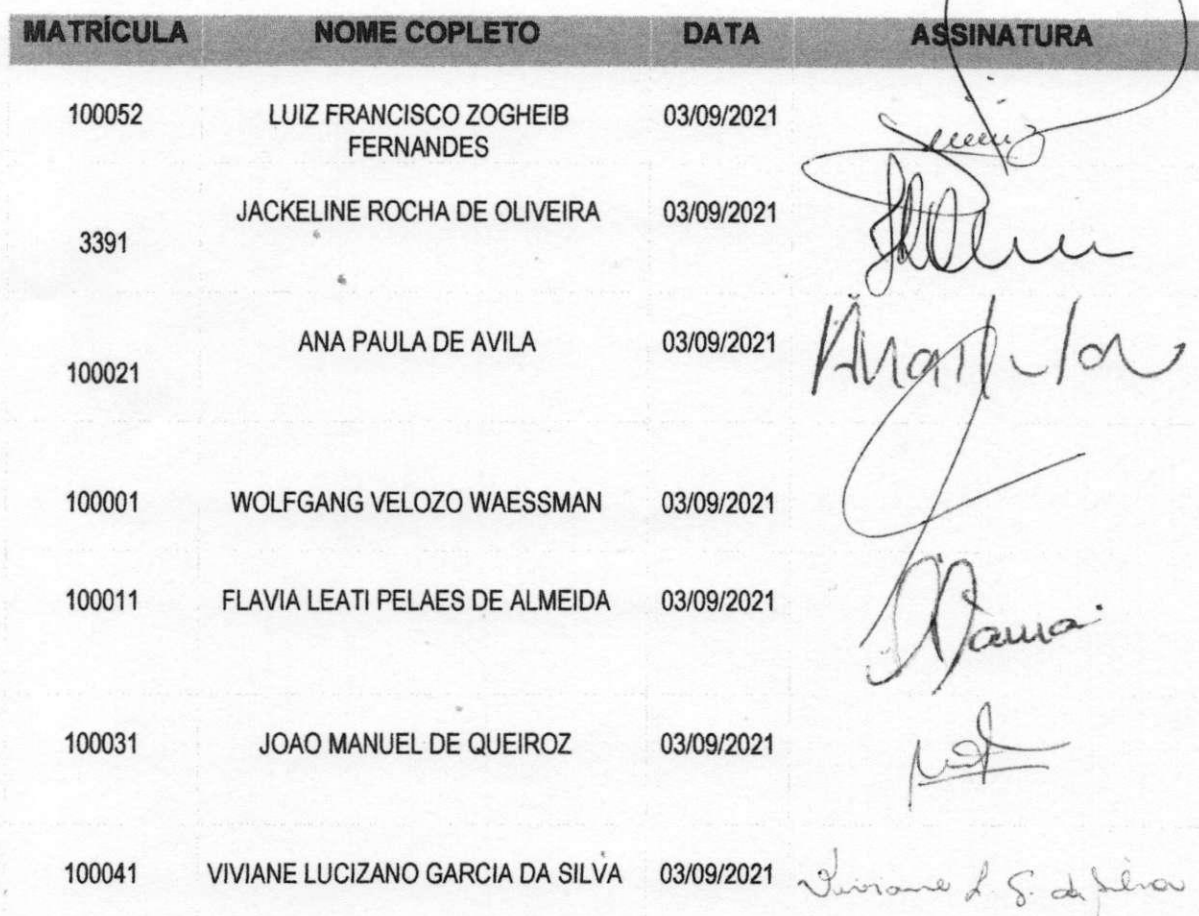 MATRÍCULA NOME COPLETO DATA ASSINATURA
100052 LUIZ FRANCISCO ZOGHEIB 03/09/2021
FERNANDES
JACKELINE ROCHA DE OLIVEIRA 03/09/2021
3391
ANA PAULA DE AVILA 03/09/2021
100021
100001 WOLFGANG VELOZO WAESSMAN 03/09/2021
100011 FLAVIA LEATI PELAES DE ALMEIDA 03/09/2021
100031 JOAO MANUEL DE QUEIROZ 03/09/2021
100041 VIVIANE LUCIZANO GARCIA DA SILVA 03/09/2021 Viviane L. G. da Silva